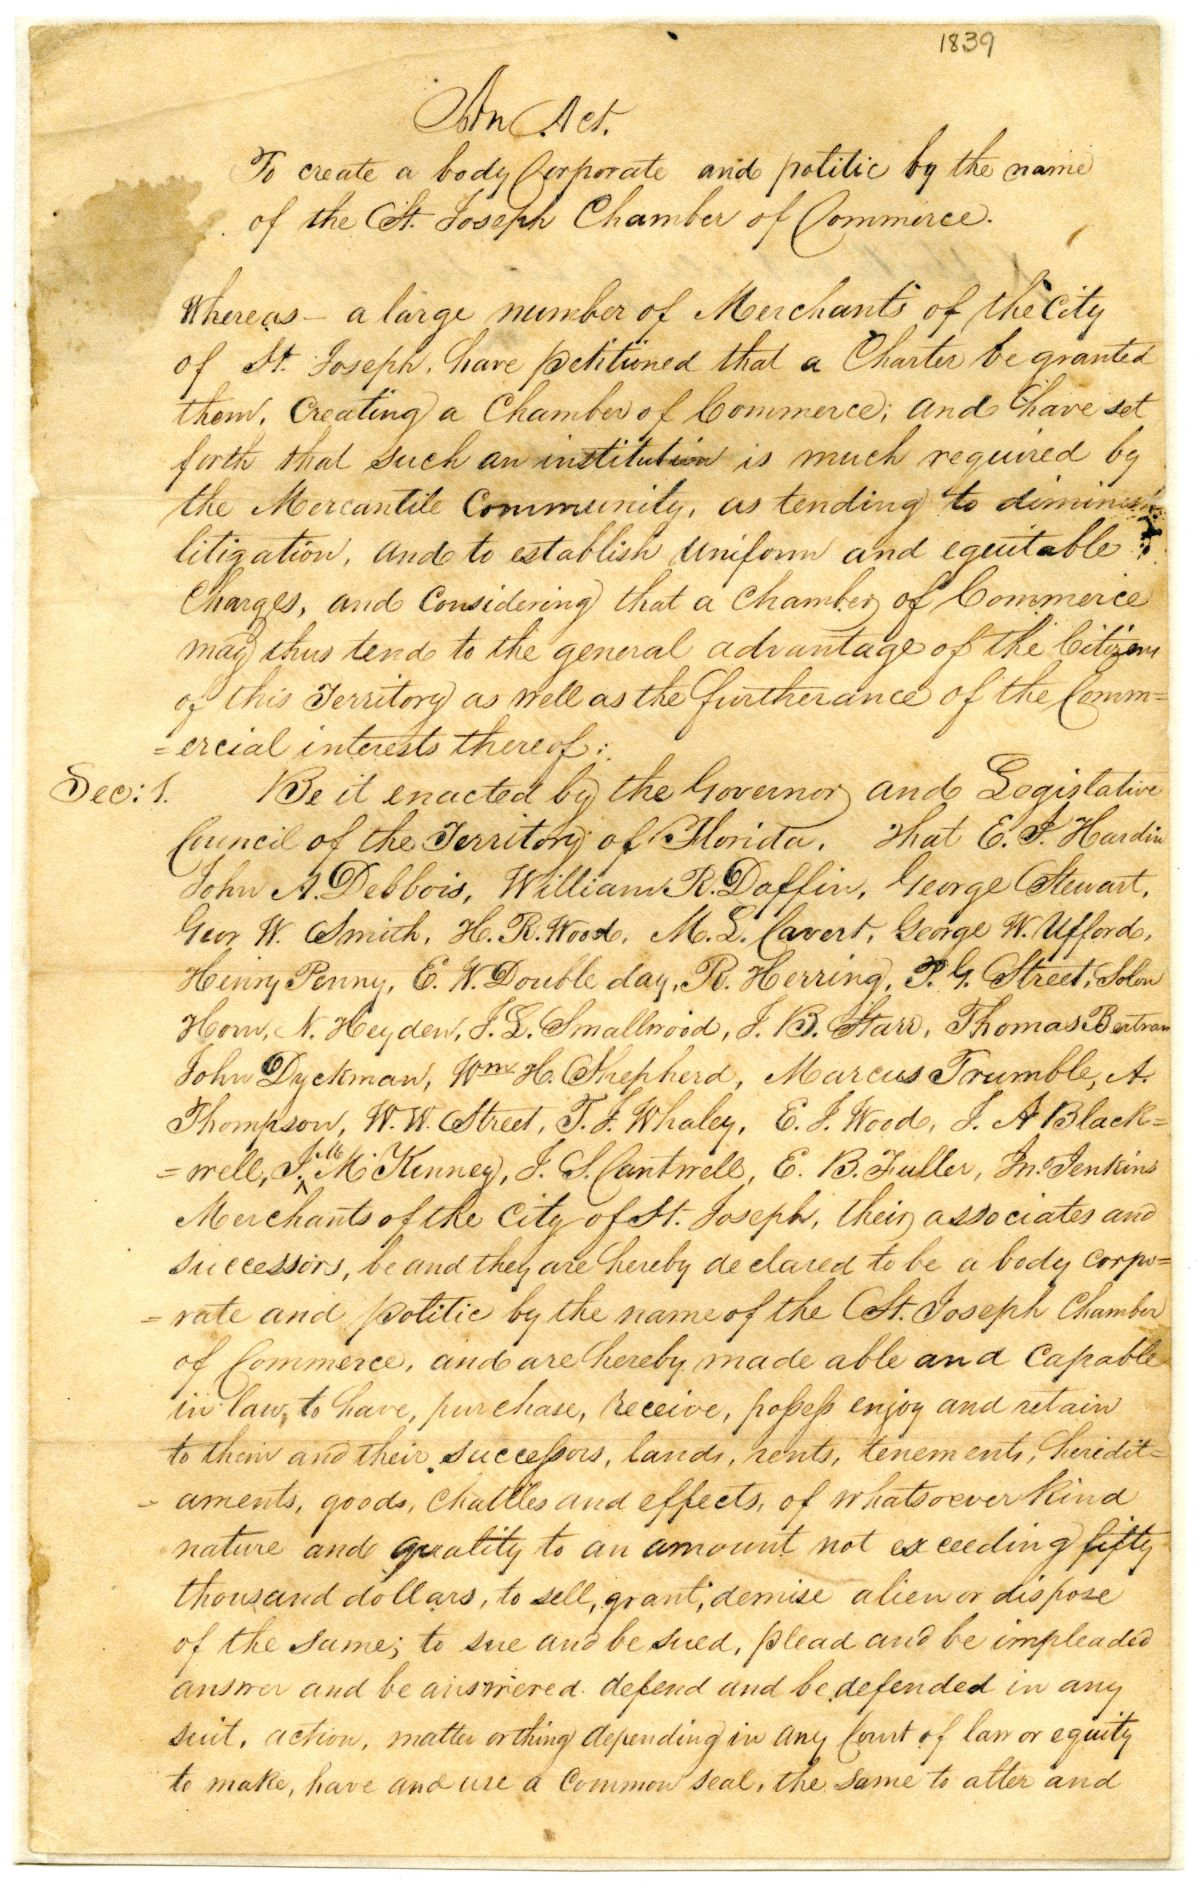 1839
An Act.
To create a body Corporate and politic by the name
of the St. Joseph Chamber of Commerce.
Whereas – a large number of Merchants of the City
of St. Joseph, have petitioned that a Charter be granted
them, Creating a Chamber of Commerce; and have set
forth that such an institution is much required by
the Mercantile Community, as tending to diminish
litigation, and to establish uniform and equitable
Charges, and Considering that a Chamber of Commerce
may thus tend to the general advantage of the Citizens
of this Territory as well as the furtherance of the Comm=
=ercial interests thereof:
Sec: 1. Be it enacted by the Governor and Legislative
Council of the Territory of Florida. That E. F. Hardin
John A. Debbois, William R. Daffin, George Stewart,
Geor W. Smith, H. R. Wood, M. L. Cavert, George W. Ufford,
Henry Penny, E. W. Double day, R. Herring, P. G. Street, Solon
Horn, N. Heyden, J. L. Smallwood, J. B. Starr, Thomas Bertram
John Dyckman, Wm H. Shepherd, Marcus Trumble, A.
Thompson, W. W. Street, T. J. Whaley, E. J. Wood, J. A Black=
=well, J. M McKinney, J. S. Cantwell, E. B. Fuller, Jno Jenkins
Merchants of the City of St. Joseph, their associates and
successors, be and they are hereby declared to be a body corpo=
=rate and politic by the name of the St. Joseph Chamber
of Commerce, and are hereby made able and Capable
in law, to have, purchase, receive, possess enjoy and retain
to them and their successors, lands, rents, tenements, heredit=
-aments, goods, Chattles and effects, of whatsoever kind
nature and quality to an amount not exceeding fifty
thousand dollars, to sell, grant, demise alien or dispose
of the same; to sue and be sued, plead and be impleaded
answer and be answered defend and be defended in any
suit, action, matter or thing depending in any Court of law or equity
to make, have and use a Common seal, the same to alter and